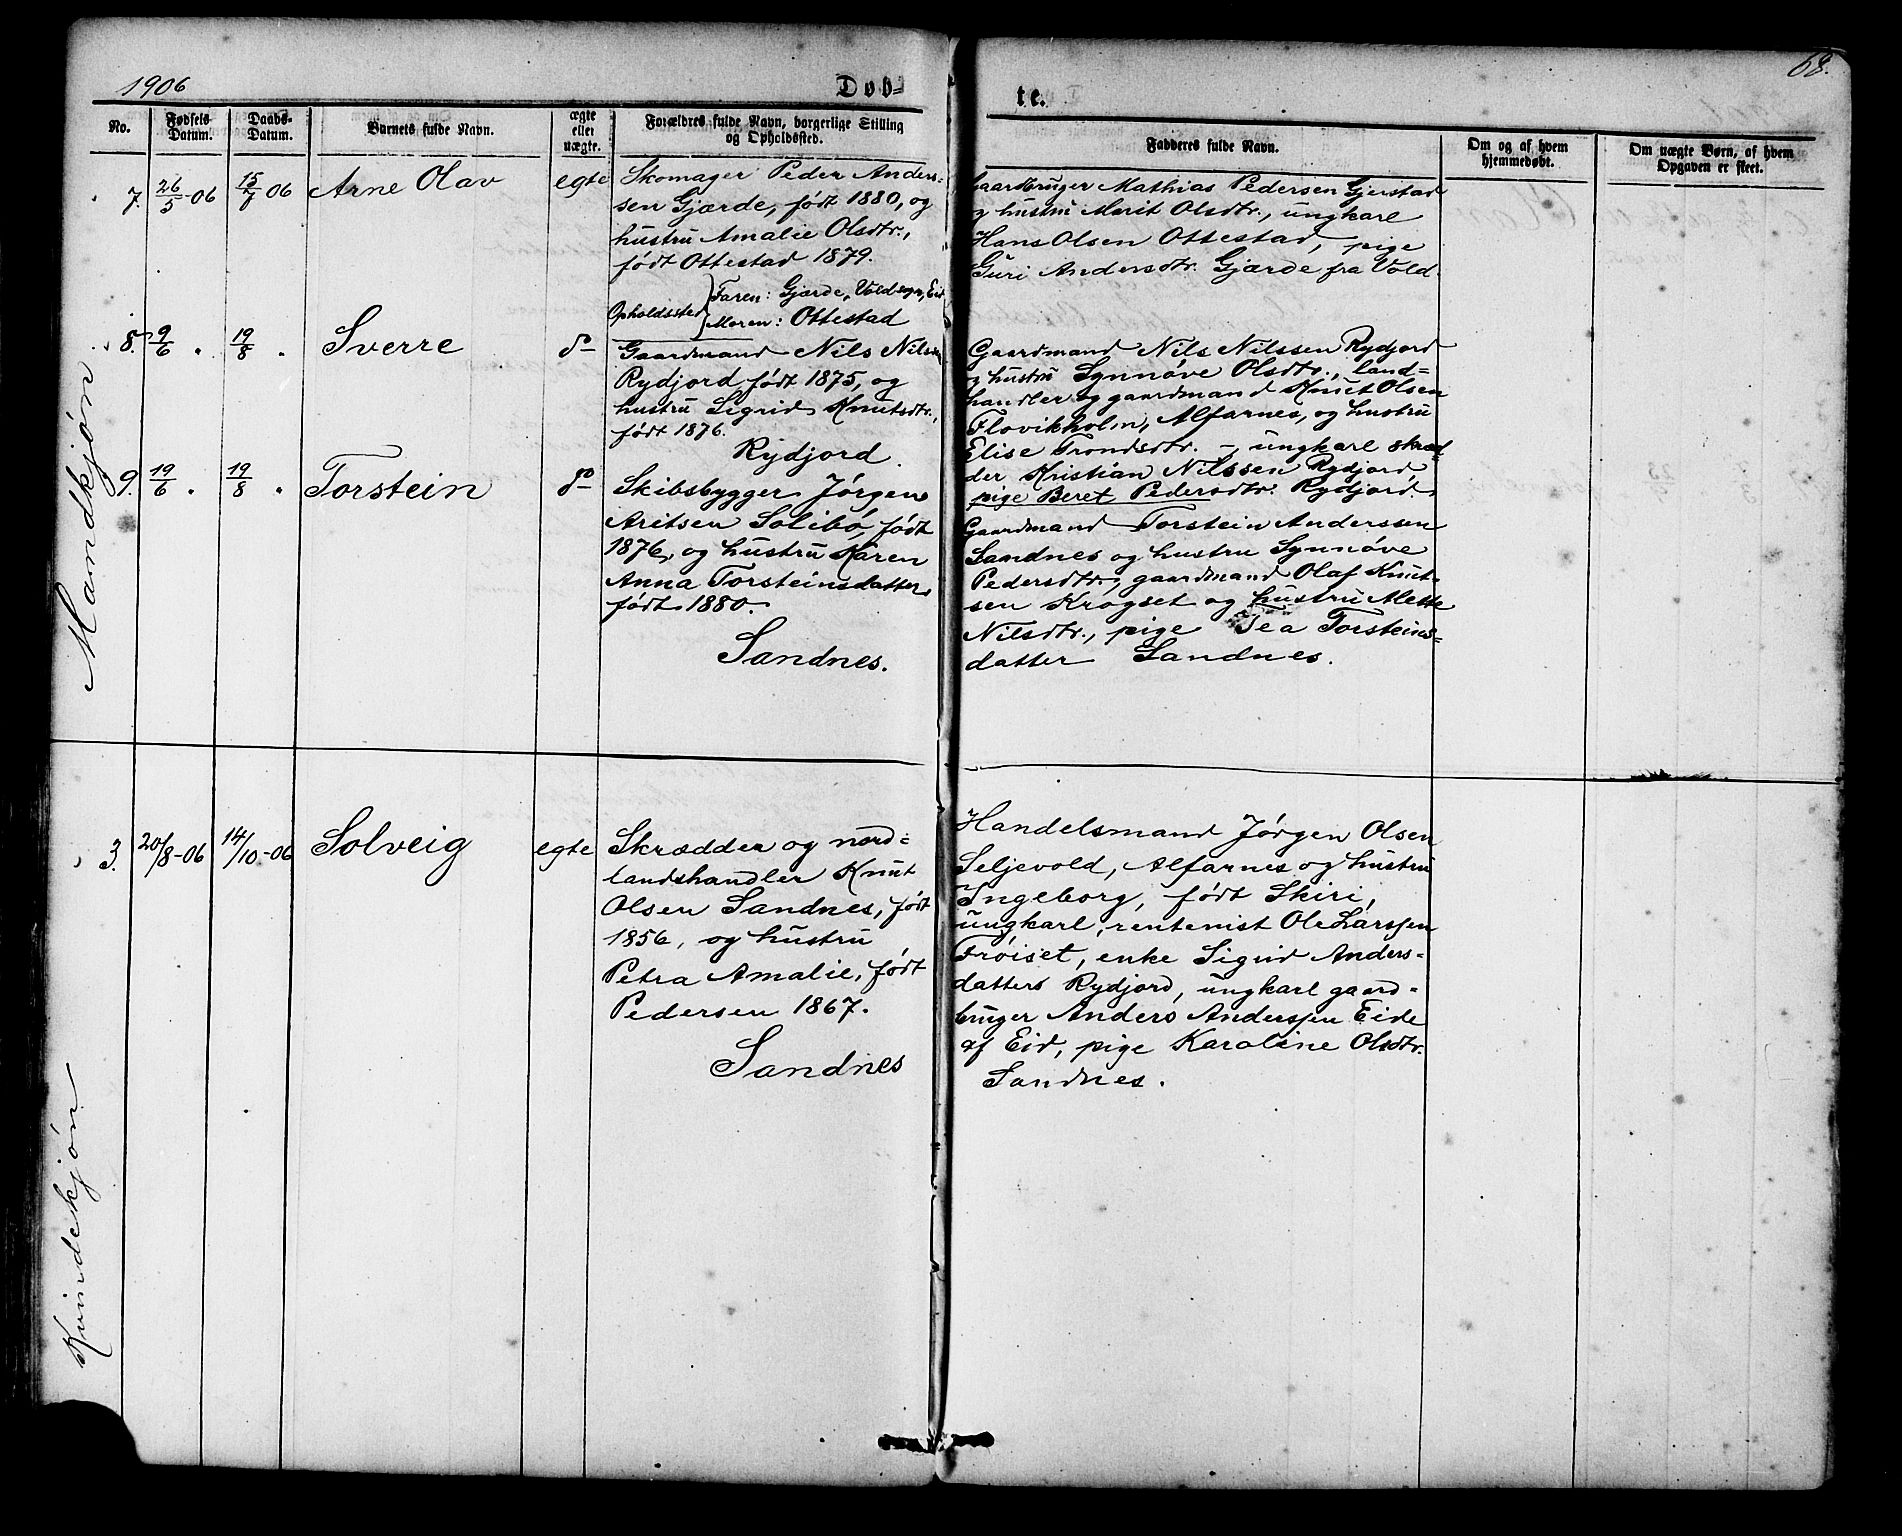 1906
Døb-
te.
68.
No.
Fødsels-
Datum.
Daabs-
Datum.
Barnets fulde Navn.
ægte
eller
uægte.
Forældres fulde Navn, borgerlige Stilling
og Opholdssted.
Fadderes fulde Navn.
Om og af hvem
hjemmedøbt.
Om uægte Børn, af hvem
Opgaven er skeet.
Mandkjøn
7. 26/5-06 15/7 06 Arne Olav egte
Skomager Peder Anders-
sen Gjærde, født 1880, og
hustru Amalie Olsdtr.,
født Ottestad 1879.
Opholdssted
Faren: Gjærde, Vold sogn, Eid
Moren: Ottestad
Gaardbruger Mathias Pedersen Gjerstad
og hustru Marit Olsdtr., ungkarl
Hans Olsen Ottestad, pige
Guri Andersdtr. Gjærde fra Vold
8. 9/6 " 19/8 " Sverre do
Gaardmand Nils Nilssen
Rydjord, født 1875, og
hustru Sigrid Knutsdtr.,
født 1876.
Rydjord.
Gaardmand Nils Nilssen Rydjord
og hustru Synnøve Olsdtr., land-
handler og gaardmand Knut Olsen
Flovikholm, Alfarnes, og hustru
Elise Trondsdtr. -, ungkarl skræd-
der Kristian Nilssen Rydjord
pige Beret Pedersdtr. Rydjord.
9. 19/6 " 19/8 " Torstein do
Skibsbygger Jørgen
Aritsen Solibø, født
1876, og hustru Karen
Anna Torsteinsdatter,
født 1880.
Sandnes.
Gaardmand Torstein Anderssen
Sandnes og hustru Synnøve
Pedersdtr., gaardmand Olaf Knut-
sen Krogset og hustru Mette
Nilsdtr., pige Tea Torsteins-
datter Sandnes.
Kvindekjøn
3. 20/8-06 14/10-06 Solveig egte
Skrædder og nord-
landshandler Knut
Olsen Sandnes, født
1856, og hustru
Petra Amalie, født
Pedersen 1867.
Sandnes
Handelsmand Jørgen Olsen
Seljevold, Alfarnes og hustru
Ingeborg, født Skiri,
ungkarl, rentenist Ole Larssen
Frøiset, enke Sigrid Anders-
datters Rydjord, ungkarl gaard-
bruger Anders Anderssen Eide
af Eid, pige Karoline Olsdtr.
Sandnes.